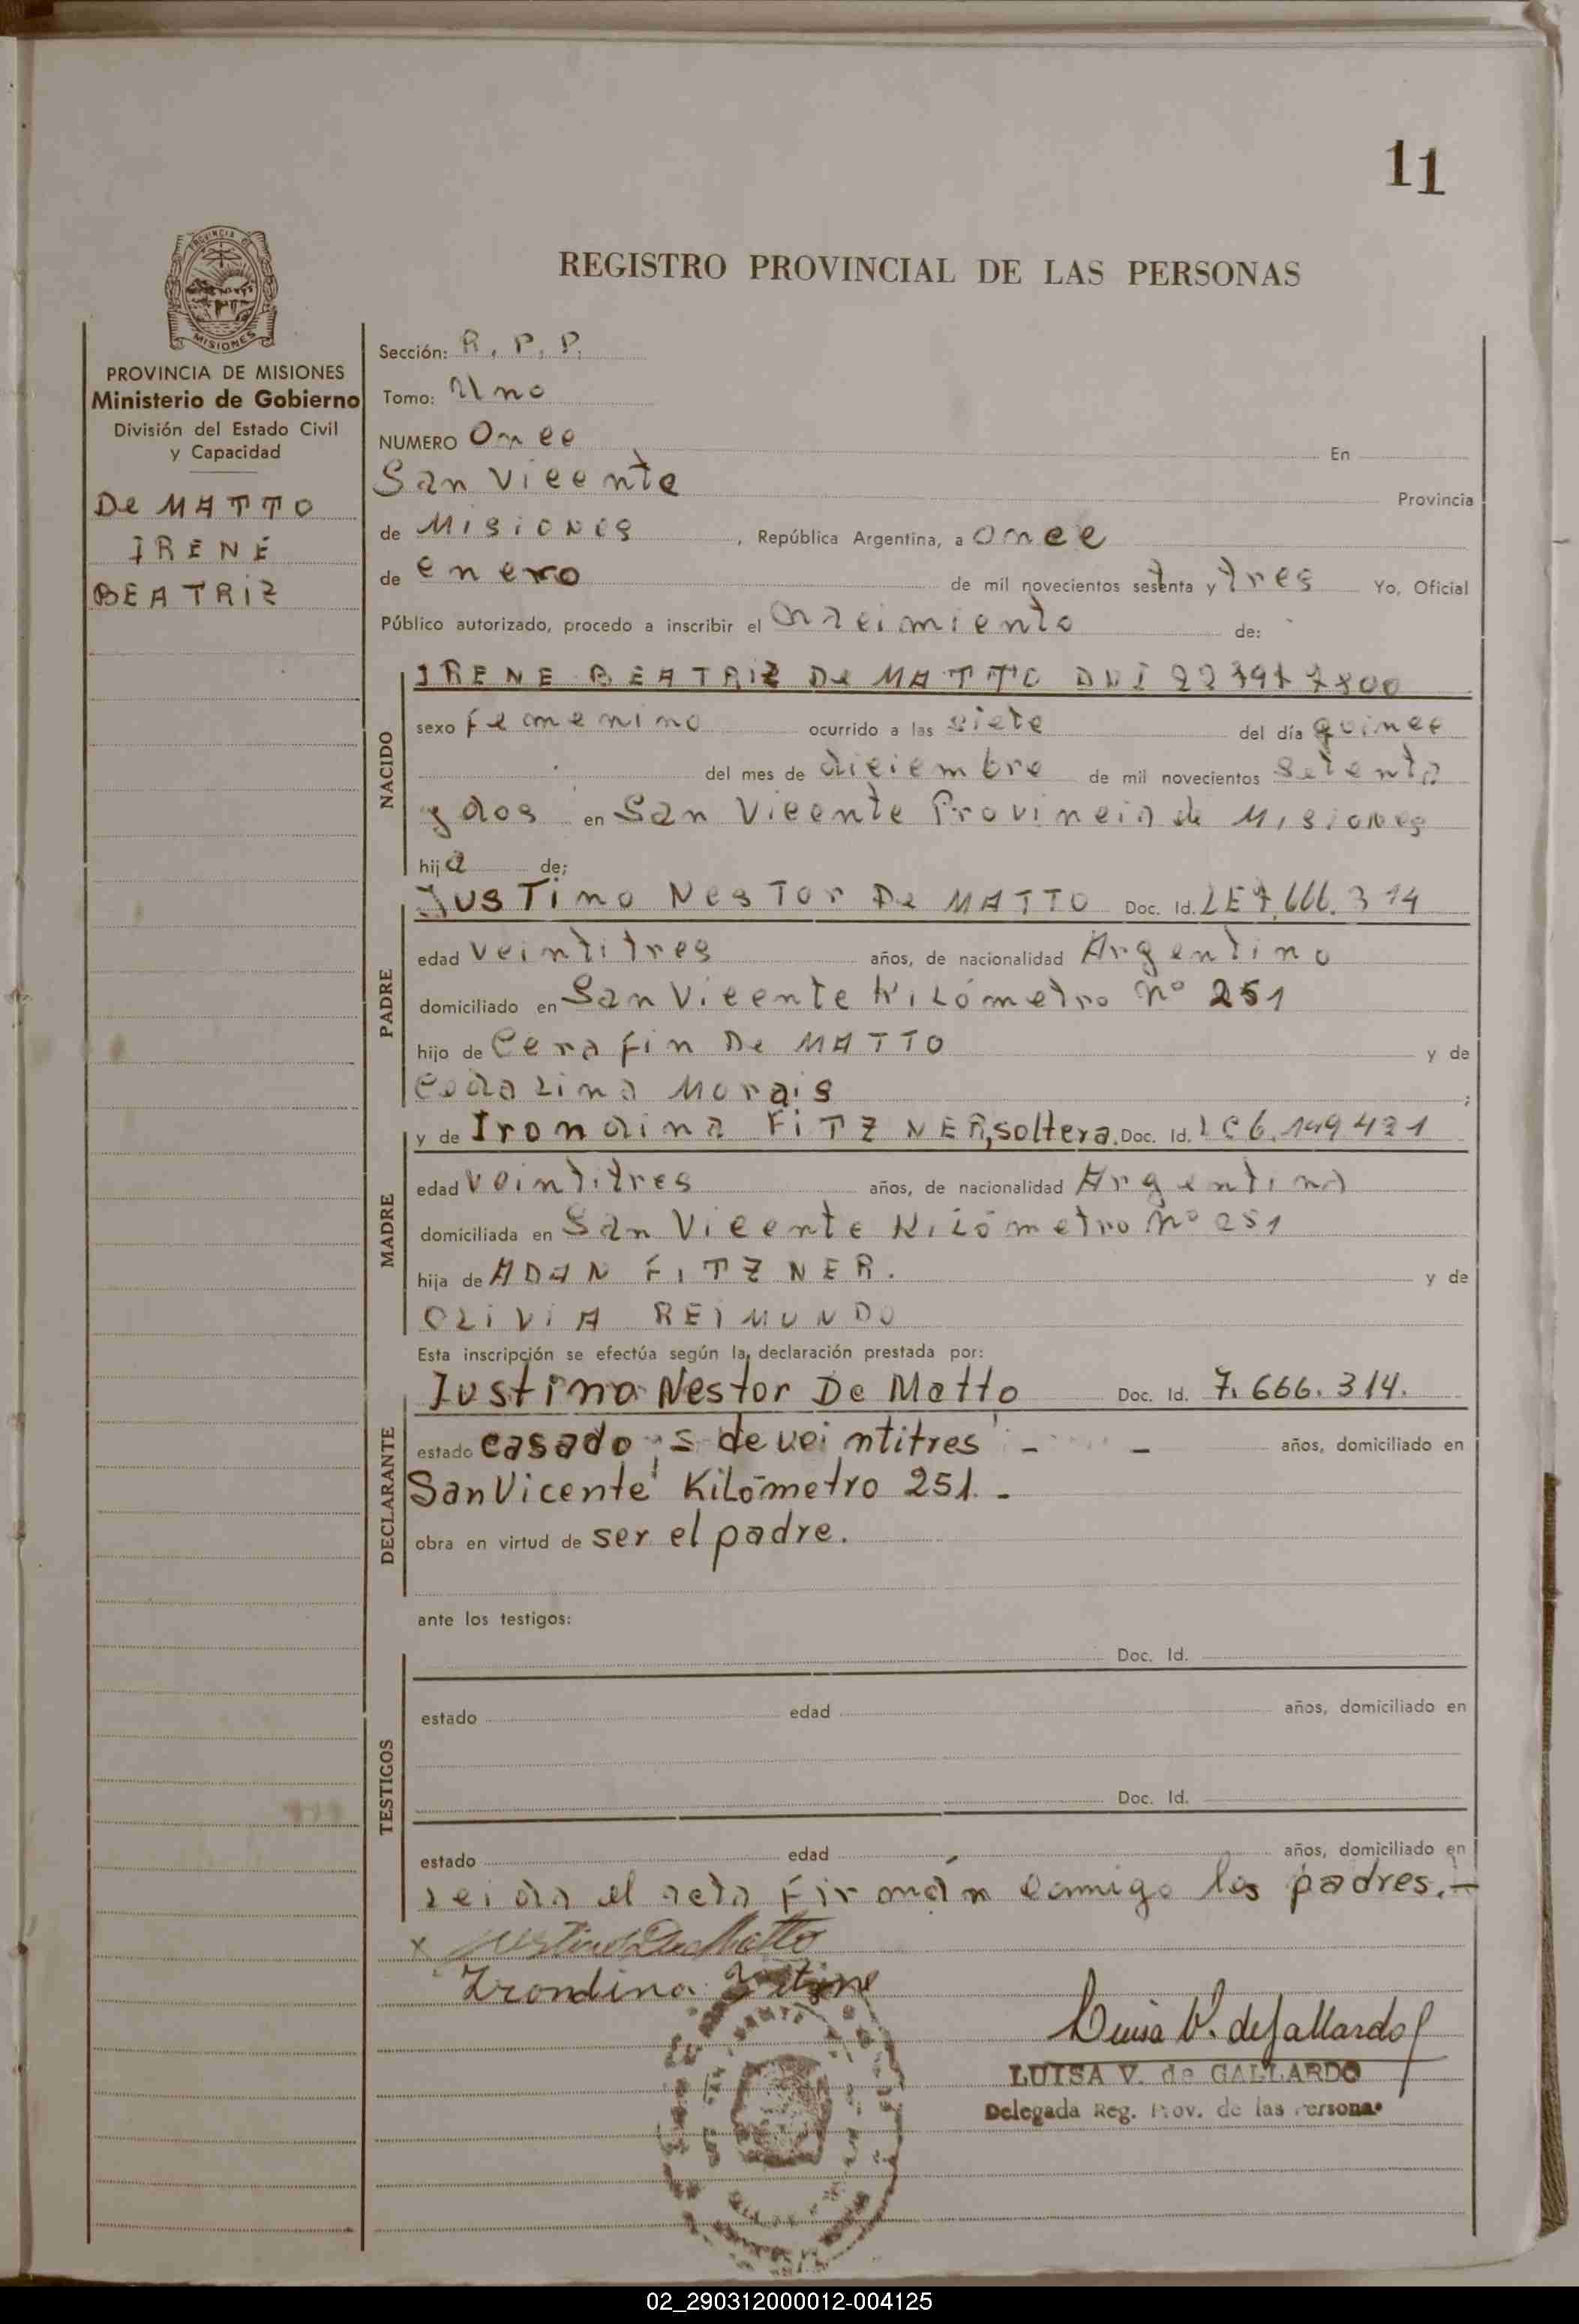 11
PROVINCIA DE
MISIONES
REGISTRO PROVINCIAL DE LAS PERSONAS
PROVINCIA DE MISIONES
Ministerio de Gobierno
División del Estado Civil
y Capacidad
De MATTO
IRENE
BEATRIZ
Sección: R. P. P.
Tomo: Uno
NUMERO Once En
San Vicente Provincia
de Misiones, República Argentina, a once
de enero de mil novecientos setenta y tres Yo, Oficial
Público autorizado, procedo a inscribir el nacimiento de:
NACIDO
IRENE BEATRIZ De MATTO DNI
sexo femenino ocurrido a las siete del día quince
del mes de diciembre de mil novecientos setenta
y dos en San Vicente Provincia de Misiones
hija de;
PADRE
Justino Nestor De MATTO Doc. Id. LE 7.666.314
edad veintitres años, de nacionalidad Argentino
domiciliado en San Vicente Kilómetro Nº 251
hijo de Cerafin De MATTO y de
Morais;
MADRE
y de Irondina FITZNER, soltera. Doc. Id. LC 6.149421
edad veintitres años, de nacionalidad Argentina
domiciliada en San Vicente Kilómetro Nº 251
hija de ADAN FITZNER. y de
OLIVIA REIMUNDO
Esta inscripción se efectúa según la declaración prestada por:
DECLARANTE
Justino Nestor De Matto Doc. Id. 7.666.314.
estado casado, s de veintitres - - años, domiciliado en
San Vicente Kilómetro 251.-
obra en virtud de ser el padre.
ante los testigos:
TESTIGOS
Doc. Id.
estado edad años, domiciliado en
Doc. Id.
estado edad años, domiciliado en
Leida el acta firmán conmigo los padres.-
x Justino De Matto
Irondina
Luisa V. de Gallardo
LUISA V. de GALLARDO
Delegada Reg. Prov. de las Personas
02_290312000012-004125